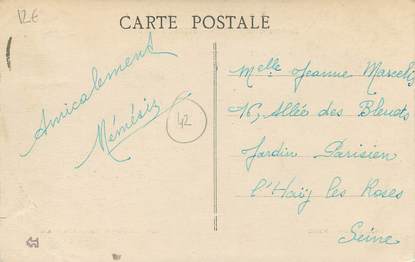 12€
CARTE POSTALE
Amicalement
Mémésis
42
Melle Jeanne Marcelis
16, Allée des Bleuets
Jardin Parisien
l'Haÿ les Roses
Seine